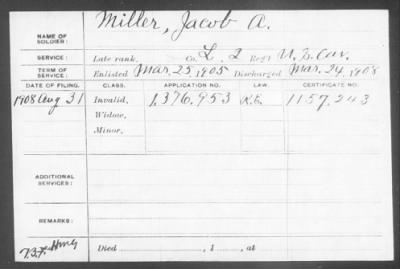 Miller, Jacob A.
NAME OF SOLDIER:
SERVICE: Late rank, Co. L, 2 Reg't U.S. Cav.
TERM OF SERVICE: Enlisted Mar. 25, 1905 Discharged Mar. 24, 1908
DATE OF FILING. CLASS. APPLICATION NO. LAW. CERTIFICATE NO.
1908 Aug 31 Invalid, 1,376,953 1157,243
Widow,
Minor,
ADDITIONAL SERVICES:
REMARKS:
Died , 1 , at